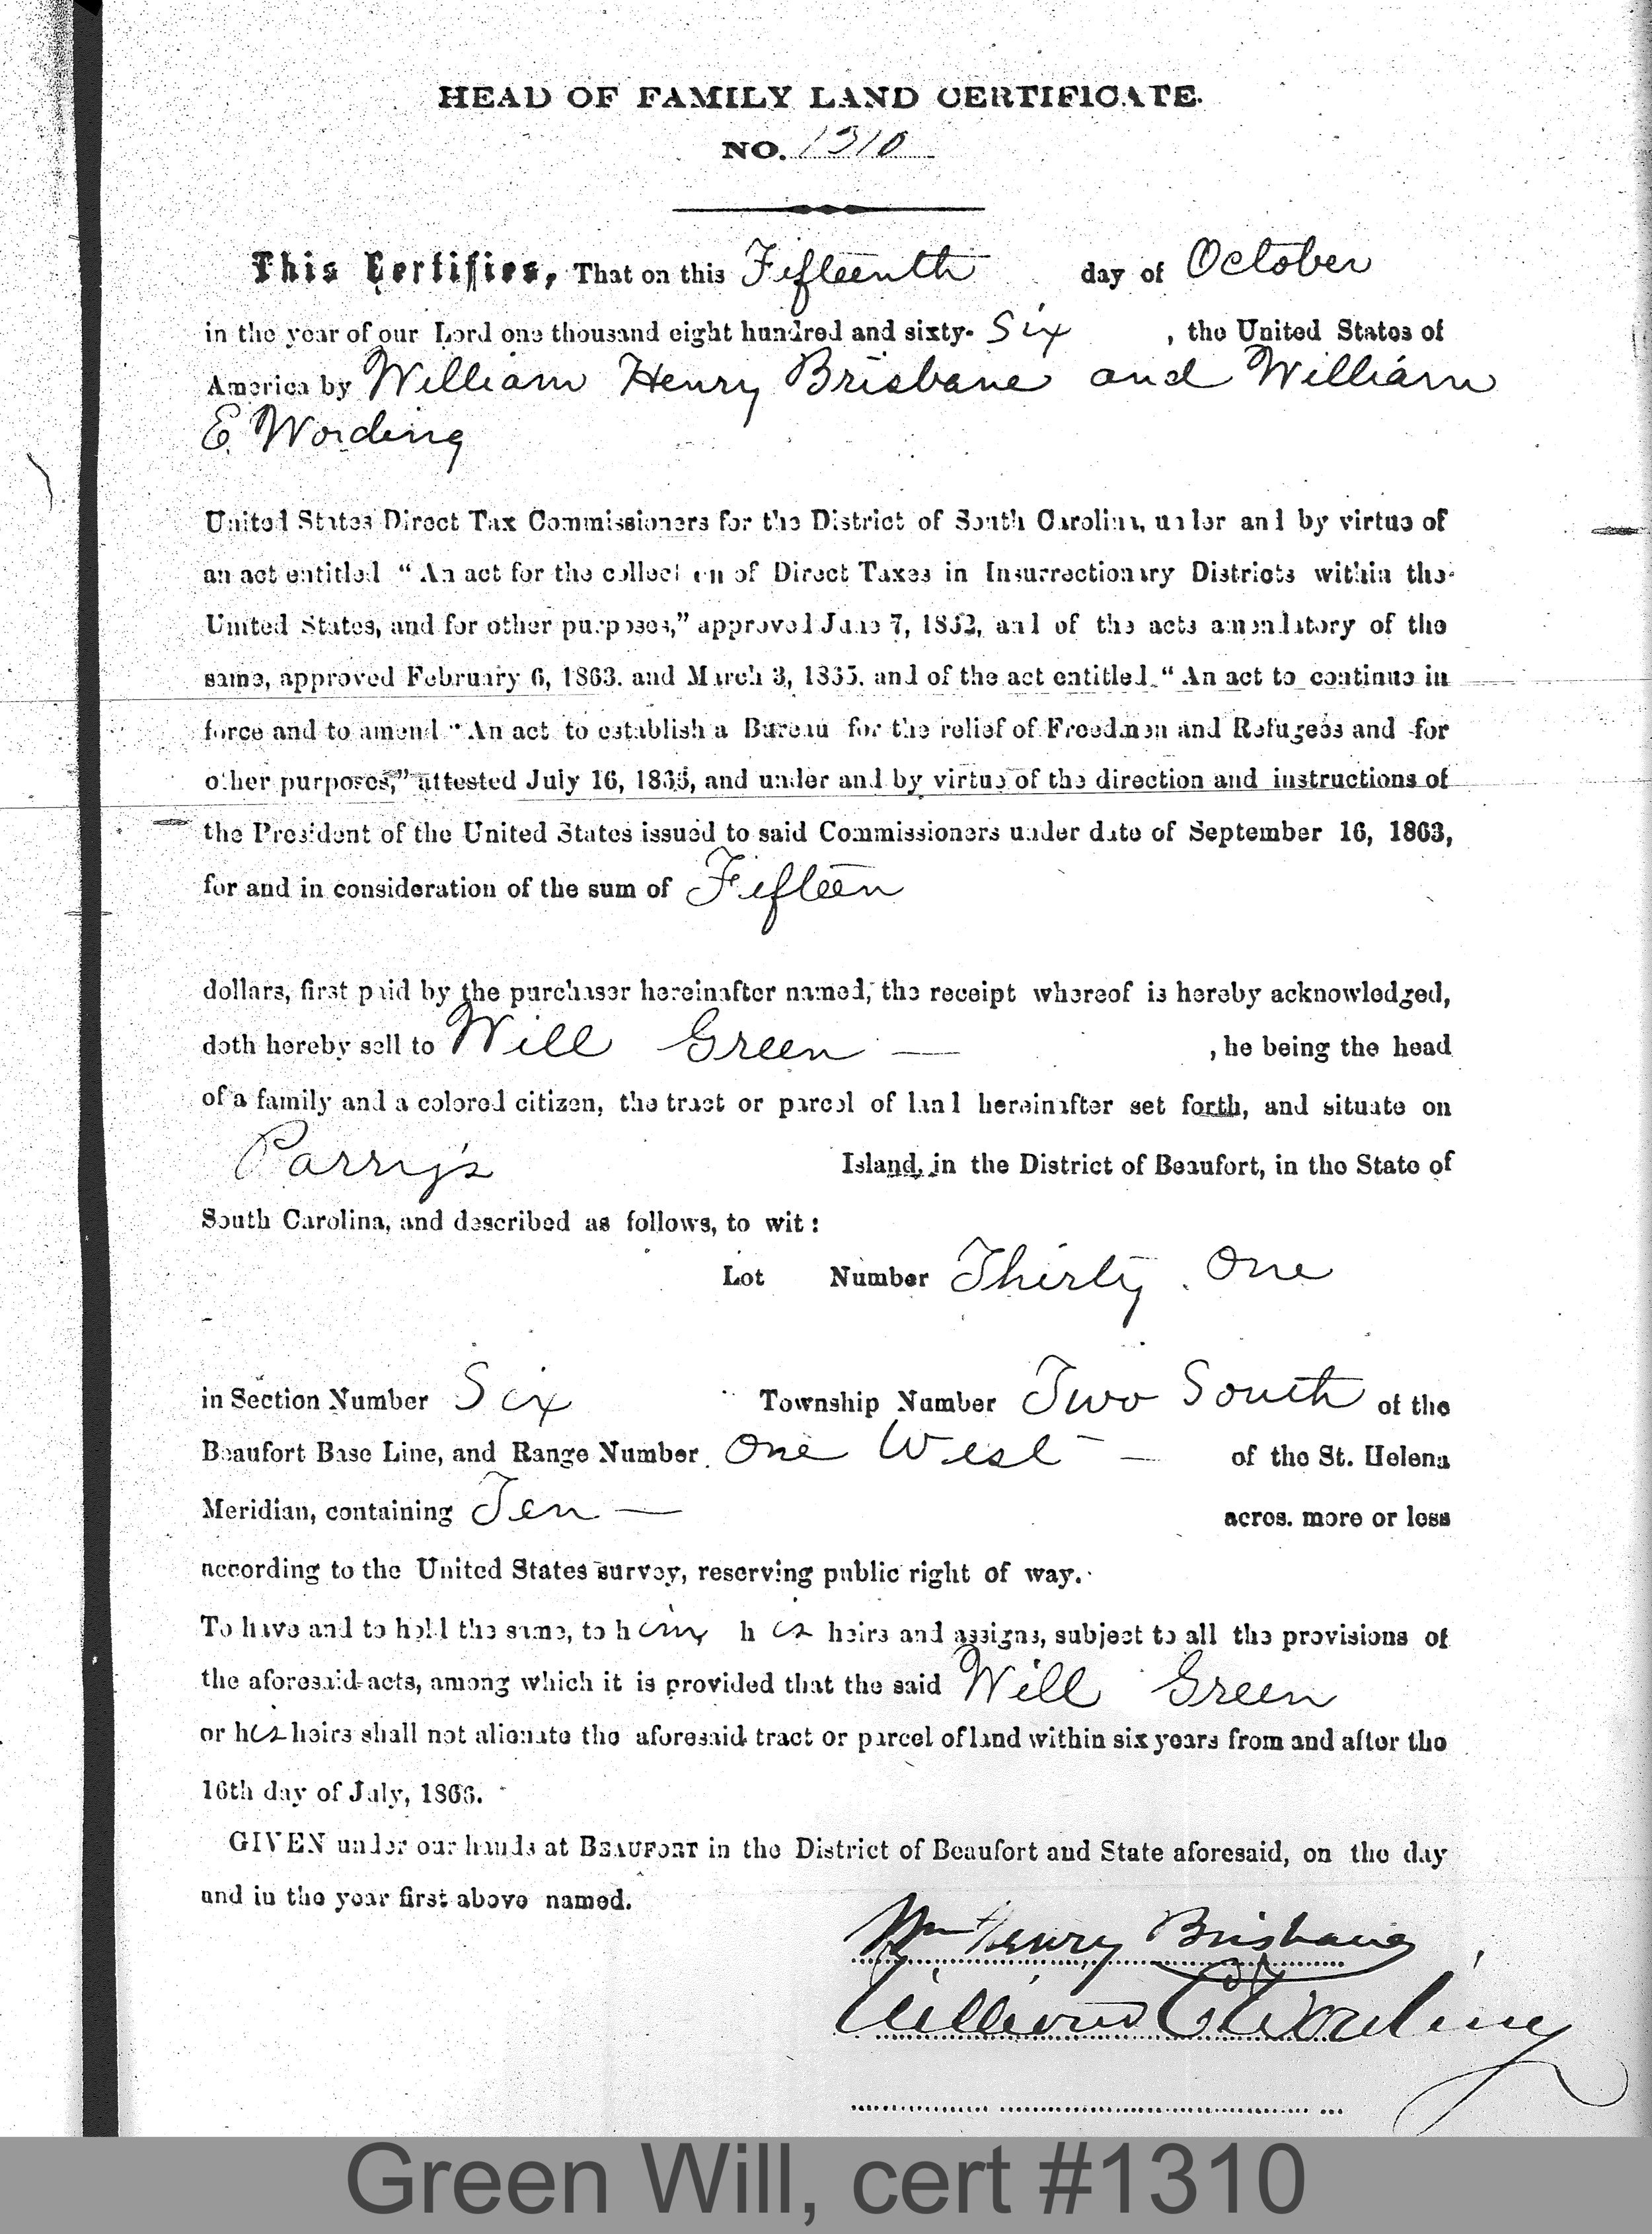 HEAD OF FAMILY LAND CERTIFICATE.
NO. 1310
This Certifies, That on this Fifteenth day of October
in the year of our Lord one thousand eight hundred and sixty- Six , the United States of
America by William Henry Brisbane and William
E. Wording
United States Direct Tax Commissioners for the District of South Carolina, under and by virtue of
an act entitled “An act for the collection of Direct Taxes in Insurrectionary Districts within the
United States, and for other purposes,” approved June 7, 1862, and of the acts amendatory of the
same, approved February 6, 1863. and March 3, 1865. and of the act entitled “An act to continue in
force and to amend “An act to establish a Bureau for the relief of Freedmen and Refugees and for
other purposes,” attested July 16, 1866, and under and by virtue of the direction and instructions of
the President of the United States issued to said Commissioners under date of September 16, 1863,
for and in consideration of the sum of Fifteen
dollars, first paid by the purchaser hereinafter named, the receipt whereof is hereby acknowledged,
doth hereby sell to Will Green — , he being the head
of a family and a colored citizen, the tract or parcel of land hereinafter set forth, and situate on
Parry's Island, in the District of Beaufort, in the State of
South Carolina, and described as follows, to wit:
Lot Number Thirty One
in Section Number Six Township Number Two South of the
Beaufort Base Line, and Range Number One West — of the St. Helena
Meridian, containing Ten — acres. more or less
according to the United States survey, reserving public right of way.
To have and to hold the same, to him his heirs and assigns, subject to all the provisions of
the aforesaid acts, among which it is provided that the said Will Green
or his heirs shall not alienate the aforesaid tract or parcel of land within six years from and after the
16th day of July, 1866.
GIVEN under our hands at BEAUFORT in the District of Beaufort and State aforesaid, on the day
and in the year first above named.
Wm Henry Brisbane
William E Wording
Green Will, cert #1310